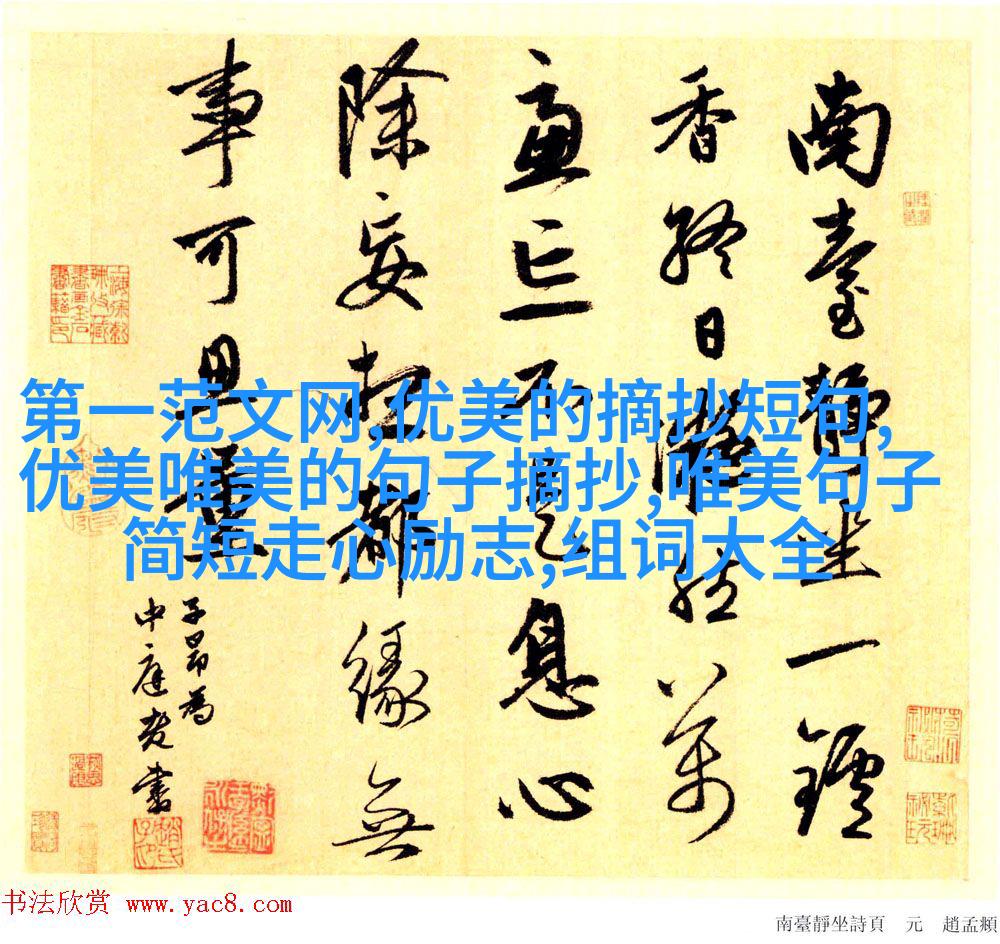 南臺靜坐一鑪
香終日凝然萬
慮亡不是息心
除妄想都緣無
事可思量
子昂為
中庭老書
第一范文网,优美的摘抄短句,
优美唯美的句子摘抄,唯美句子
简短走心励志,组词大全
书法欣赏 www.yac8.com
南臺靜坐詩頁 元 趙孟頫